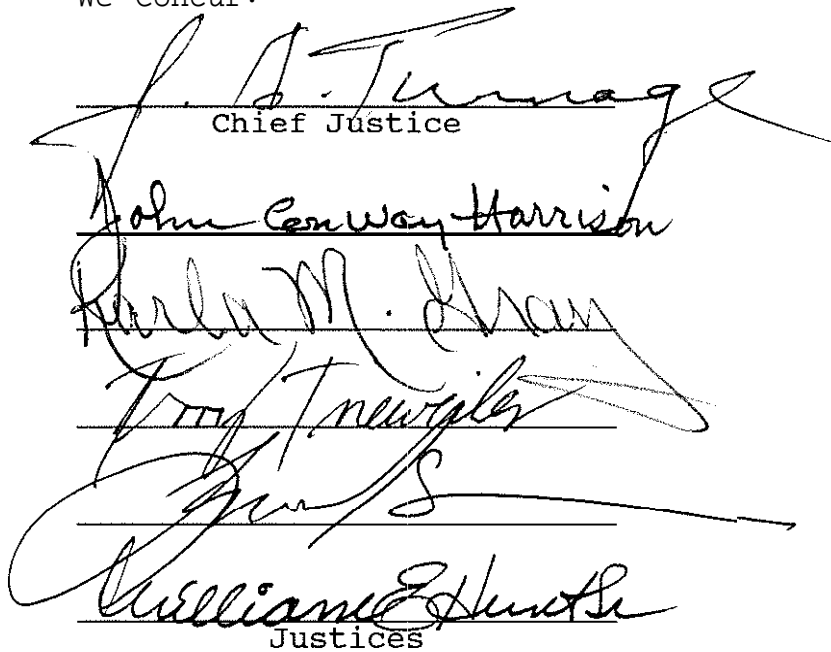 We concur:
J. A. Turnage
Chief Justice
John Conway Harrison
Karla M. Gray
Terry Trieweiler
William E Hunt Sr
Justices